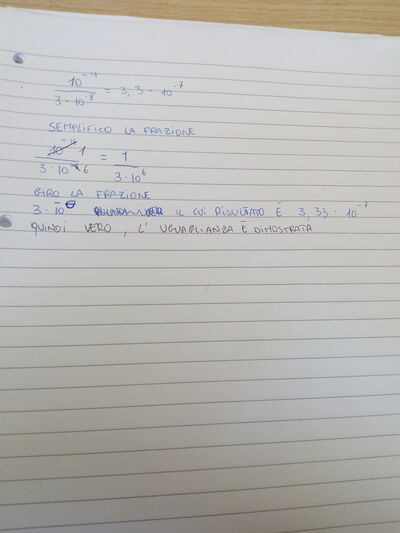 10^-14 / 3 · 10^-8 = 3,3 · 10^-7
SEMPLIFICO LA FRAZIONE
1 / 3 · 10^6 = 1 / 3 · 10^6
GIRO LA FRAZIONE
3 · 10^-6 IL CUI RISULTATO È 3,33 · 10^-7
QUINDI VERO, L' UGUAGLIANZA È DIMOSTRATA